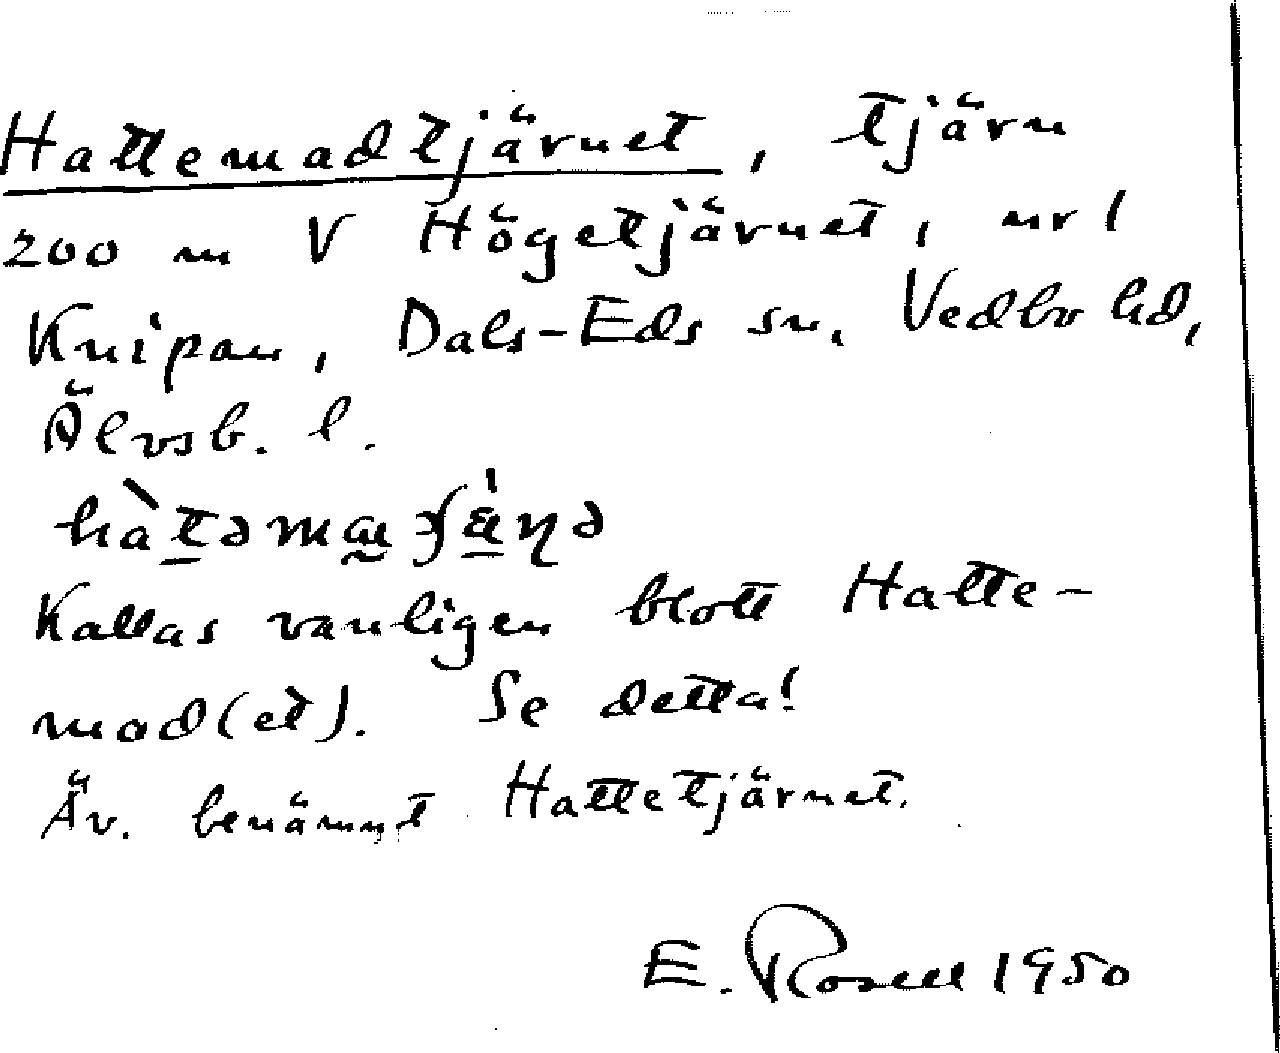 Hattemadtjärnet, tjärn
200 m V Högetjärnet, nr 1
Knipan, Dals-Eds sn. Vedbo hd,
Älvsb. l.
Kallas vanligen blott Hatte-
mad(et). Se detta!
Äv. benämnt Hattetjärnet.
E. Rosell 1950